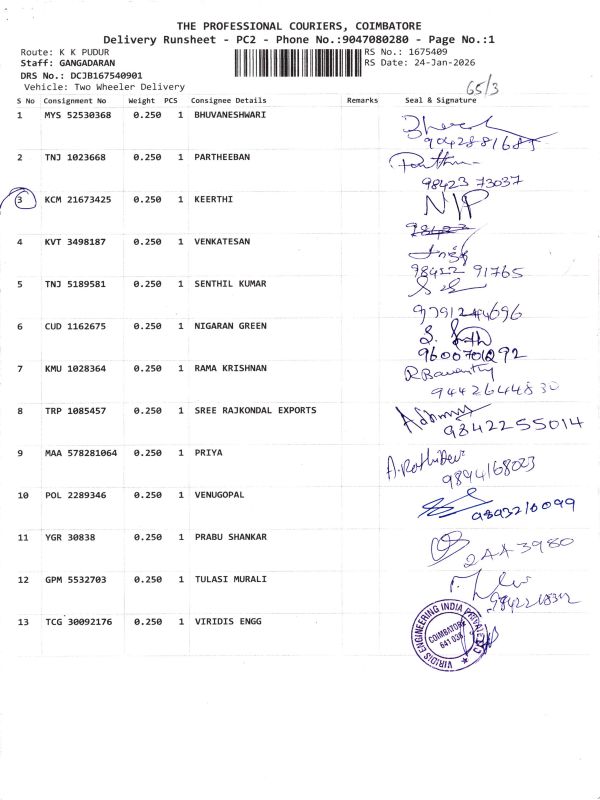 THE PROFESSIONAL COURIERS, COIMBATORE
Delivery Runsheet - PC2 - Phone No.:9047080280 - Page No.:1
Route: K K PUDUR RS No.: 1675409
Staff: GANGADARAN RS Date: 24-Jan-2026
DRS No.: DCJB167540901
Vehicle: Two Wheeler Delivery
65/3
S No Consignment No Weight PCS Consignee Details Remarks Seal & Signature
1 MYS 52530368 0.250 1 BHUVANESHWARI
2 TNJ 1023668 0.250 1 PARTHEEBAN
98423 73037
3 KCM 21673425 0.250 1 KEERTHI N/P
4 KVT 3498187 0.250 1 VENKATESAN
98422 91765
5 TNJ 5189581 0.250 1 SENTHIL KUMAR
9791244696
6 CUD 1162675 0.250 1 NIGARAN GREEN
7 KMU 1028364 0.250 1 RAMA KRISHNAN
9442644830
8 TRP 1085457 0.250 1 SREE RAJKONDAL EXPORTS
9842255014
9 MAA 578281064 0.250 1 PRIYA
9894168023
10 POL 2289346 0.250 1 VENUGOPAL
11 YGR 30838 0.250 1 PRABU SHANKAR
2AA3980
12 GPM 5532703 0.250 1 TULASI MURALI
13 TCG 30092176 0.250 1 VIRIDIS ENGG
VIRIDIS ENGINEERING INDIA PRIVATE
COIMBATORE
641 038